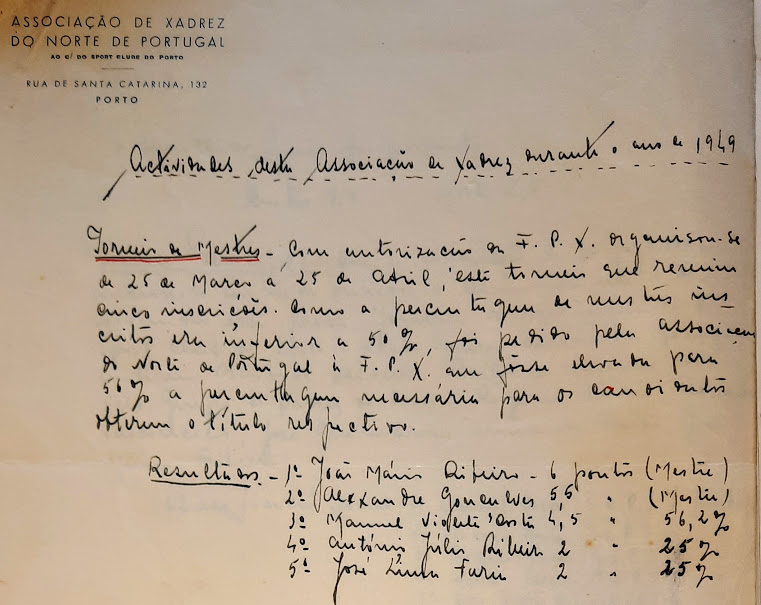 ASSOCIAÇÃO DE XADREZ
DO NORTE DE PORTUGAL
AO C/ DO SPORT CLUBE DO PORTO
RUA DE SANTA CATARINA, 132
PORTO
Actividades desta Associação de Xadrez durante o ano de 1949
Torneio de Mestres - Com autorização da F. P. X. organisou-se
de 25 de Março a 25 de Abril, este torneio que reuniu
cinco inscrições. Como a percentagem de mestres ins
critos era inferior a 50%, foi pedido pela Associaçao
do Norte de Portugal à F. P. X. que fôsse elevada para
56% a percentagem necessária para os candidatos
obterem o título respectivo.
Resultados - 1º João Mário Ribeiro - 6 pontos (Mestre)
2º Alexandre Gonçalves 5,5 " (Mestre)
3º Manuel Vicente Costa 4,5 " 56,2%
4º António Júlio Ribeiro 2 " 25%
5º José Lima Faria 2 " 25%